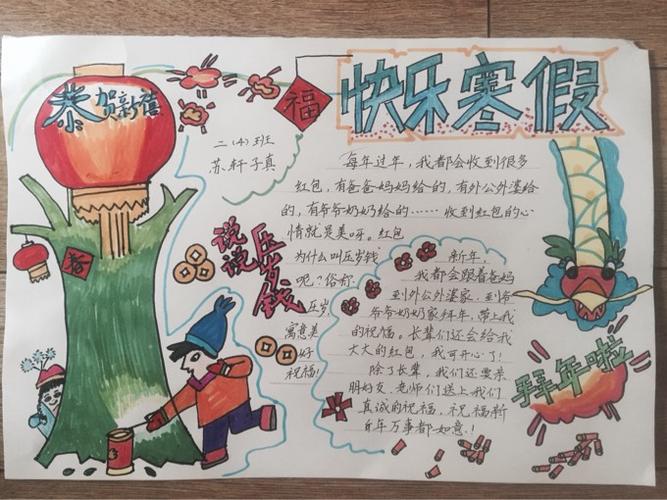 快乐寒假
恭贺新禧
福
猪
二(4)班
苏轩子真
说说压岁钱
每年过年,我都会收到很多
红包,有爸爸妈妈给的,有外公外婆给
的,有爷爷奶奶给的……收到红包的心
情就是美呀。红包
为什么叫压岁钱
呢?俗称
压岁
寓意美
好
祝福!
新年,
我都会跟着爸妈
到外公外婆家,到爷
爷奶奶家拜年,带上我
的祝福。长辈们还会给我
大大的红包,我可开心了!
除了长辈,我们还要亲
朋好友、老师们送上我们
真诚的祝福,祝福新
年万事都如意!
拜年啦